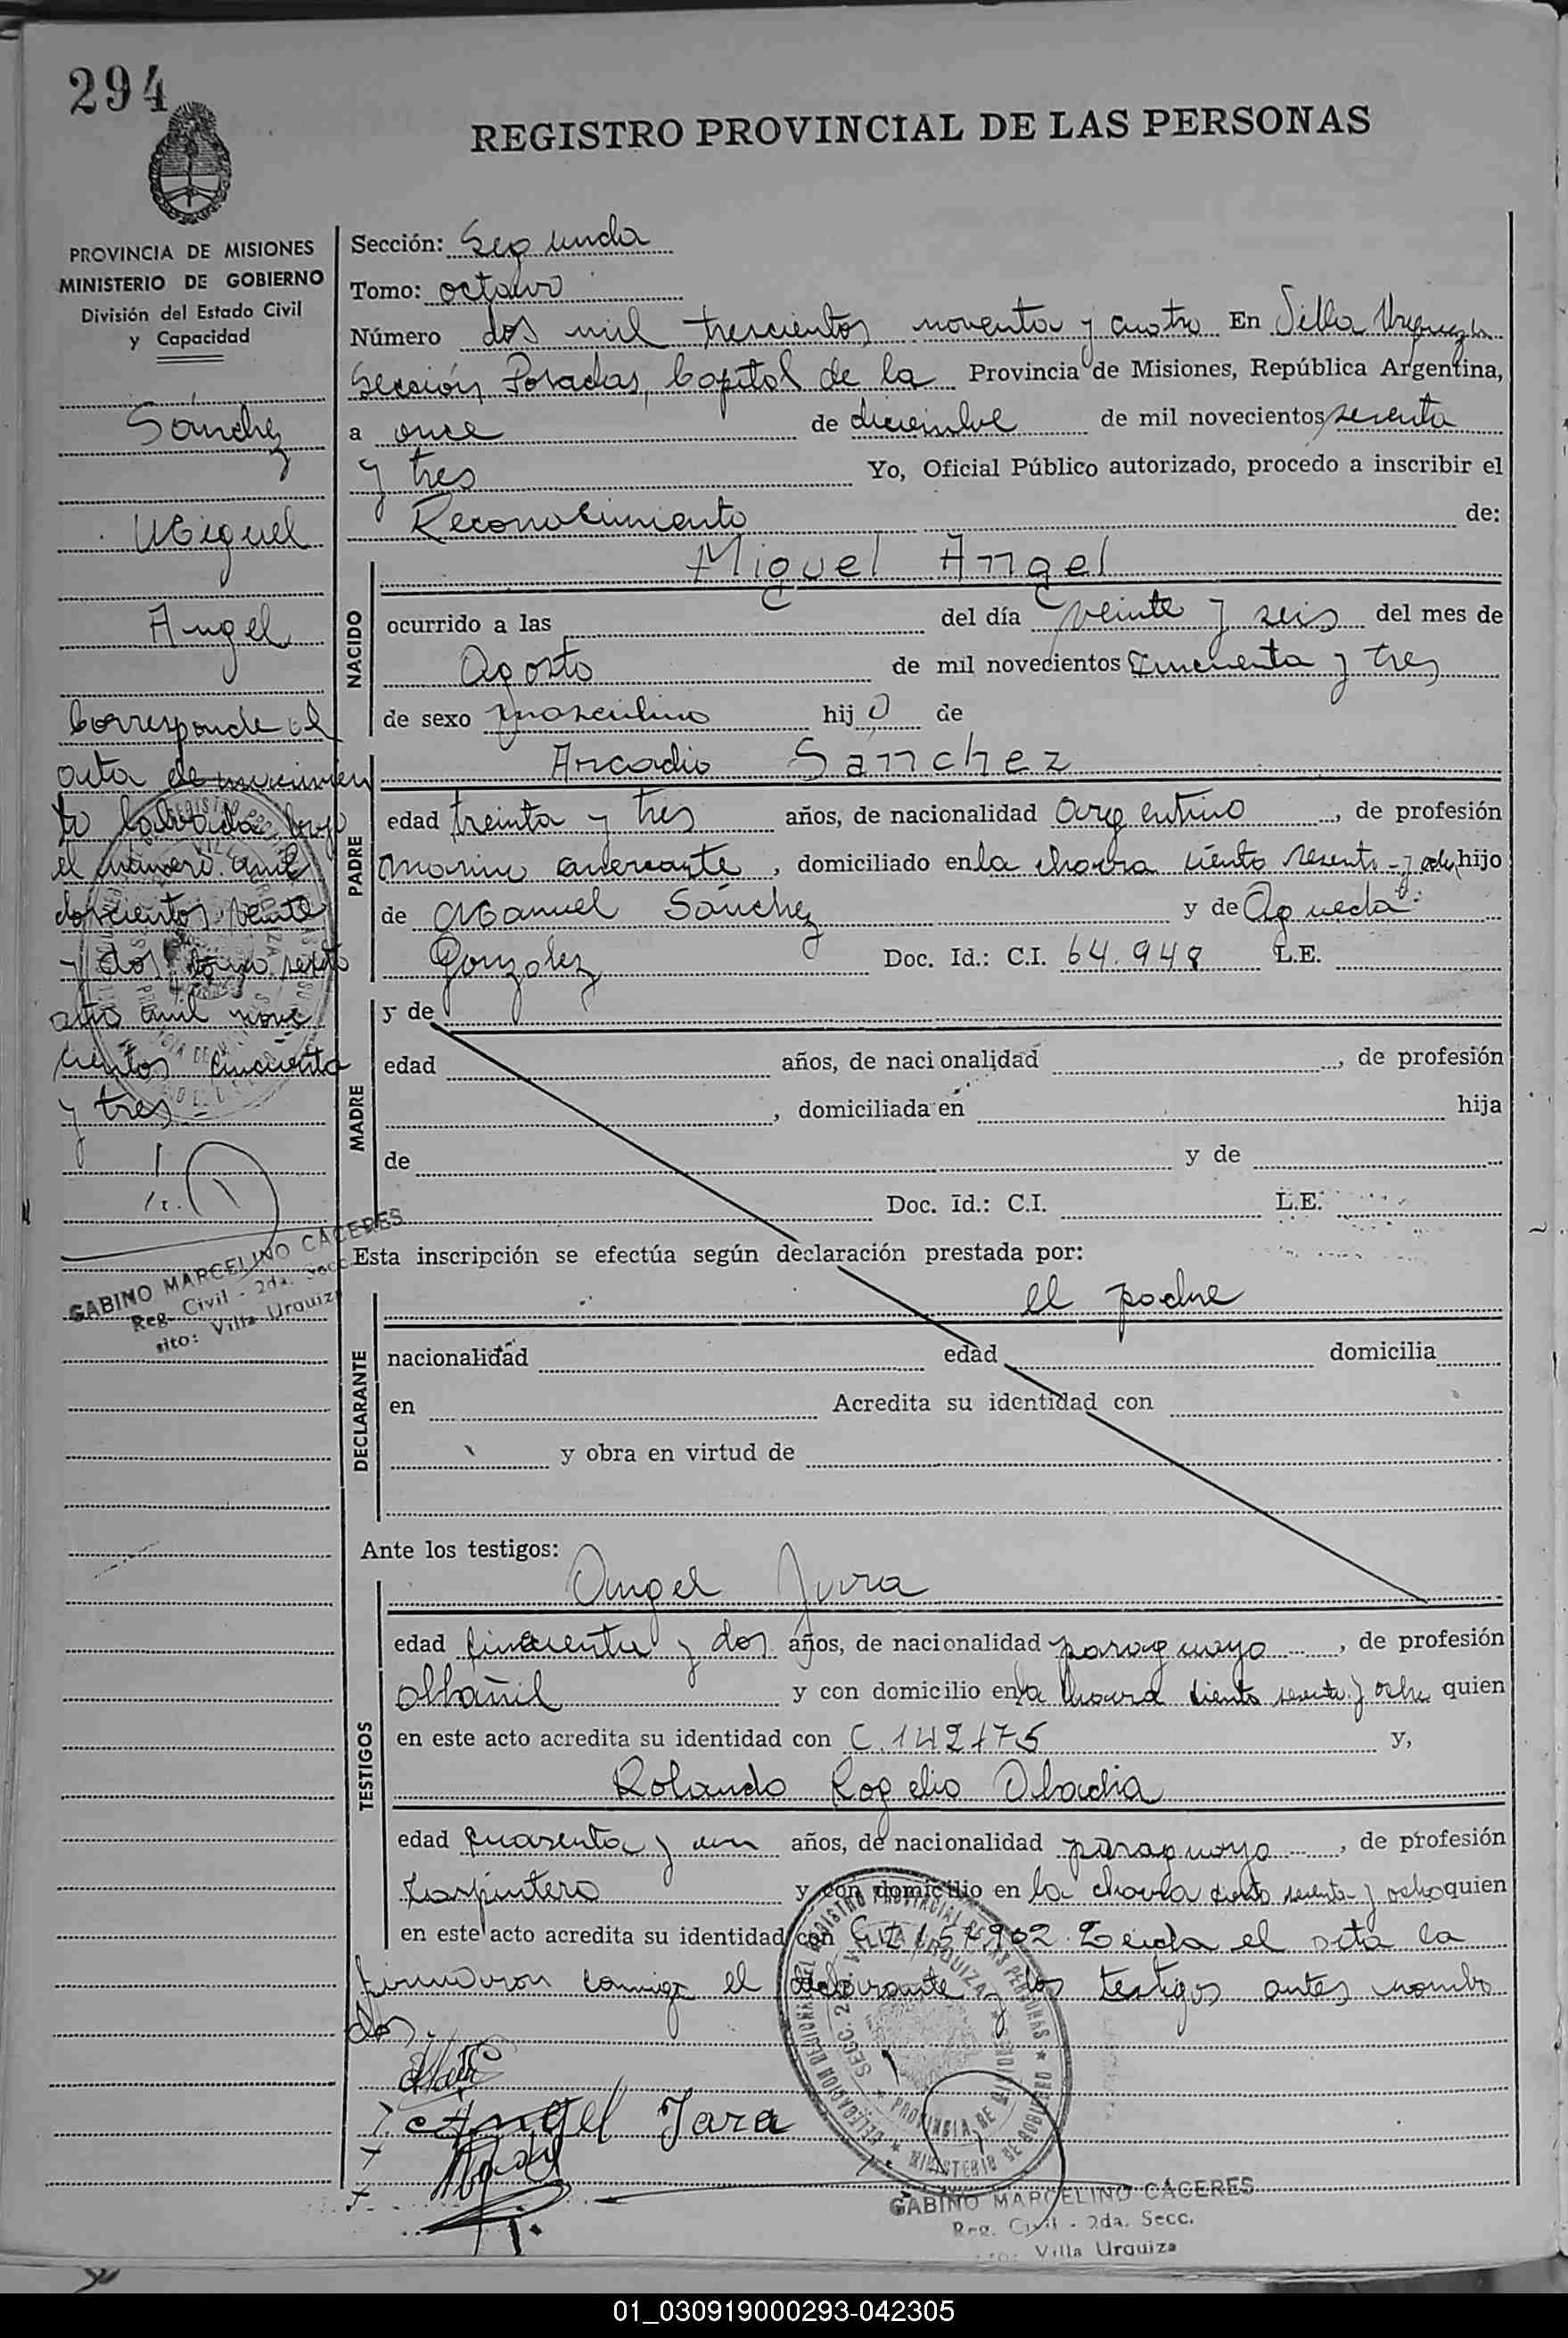 294
REGISTRO PROVINCIAL DE LAS PERSONAS
PROVINCIA DE MISIONES
MINISTERIO DE GOBIERNO
División del Estado Civil
y Capacidad
Sánchez
Miguel
Angel
Corresponde al
acta de nacimien
to labrada bajo
el número mil
doscientos veinte
y dos tomo sexto
año mil nove
cientos cincuenta
y tres
GABINO MARCELINO CACERES
Reg. Civil - 2da. Secc.
sito: Villa Urquiza
Sección: Segunda
Tomo: octavo
Número dos mil trescientos noventa y cuatro En Villa Urquiza
Sección Posadas, Capital de la Provincia de Misiones, República Argentina,
a once de diciembre de mil novecientos sesenta
y tres Yo, Oficial Público autorizado, procedo a inscribir el
Reconocimiento de:
NACIDO
Miguel Angel
ocurrido a las del día veinte y seis del mes de
Agosto de mil novecientos cincuenta y tres
de sexo masculino hijo de
PADRE
Arcadio Sanchez
edad treinta y tres años, de nacionalidad argentino, de profesión
marino mercante, domiciliado en la chacra ciento sesenta y ocho hijo
de Manuel Sánchez y de Agueda
González Doc. Id.: C.I. 64.948 L.E.
MADRE
y de
edad años, de nacionalidad , de profesión
, domiciliada en hija
de y de
Doc. Id.: C.I. L.E.
Esta inscripción se efectúa según declaración prestada por:
DECLARANTE
el padre
nacionalidad edad domicilia
en Acredita su identidad con
y obra en virtud de
Ante los testigos:
TESTIGOS
Angel Jara
edad cincuenta y dos años, de nacionalidad paraguayo, de profesión
albañil y con domicilio en la chacra ciento sesenta y ocho quien
en este acto acredita su identidad con C. 142175 y,
Rolando Rogelio Abadia
edad cuarenta y un años, de nacionalidad paraguayo, de profesión
carpintero y con domicilio en la chacra ciento sesenta y ocho quien
en este acto acredita su identidad con Leida el acta la
firmaron conmigo el declarante y los testigos antes nombra
dos.
Angel Jara
DELEGACION REGIONAL DEL REGISTRO PROVINCIAL DE LAS PERSONAS
SECC. 2a. VILLA URQUIZA
PROVINCIA DE MISIONES
MINISTERIO DE GOBIERNO
GABINO MARCELINO CACERES
Reg. Civil - 2da. Secc.
sito: Villa Urquiza
01_030919000293-042305